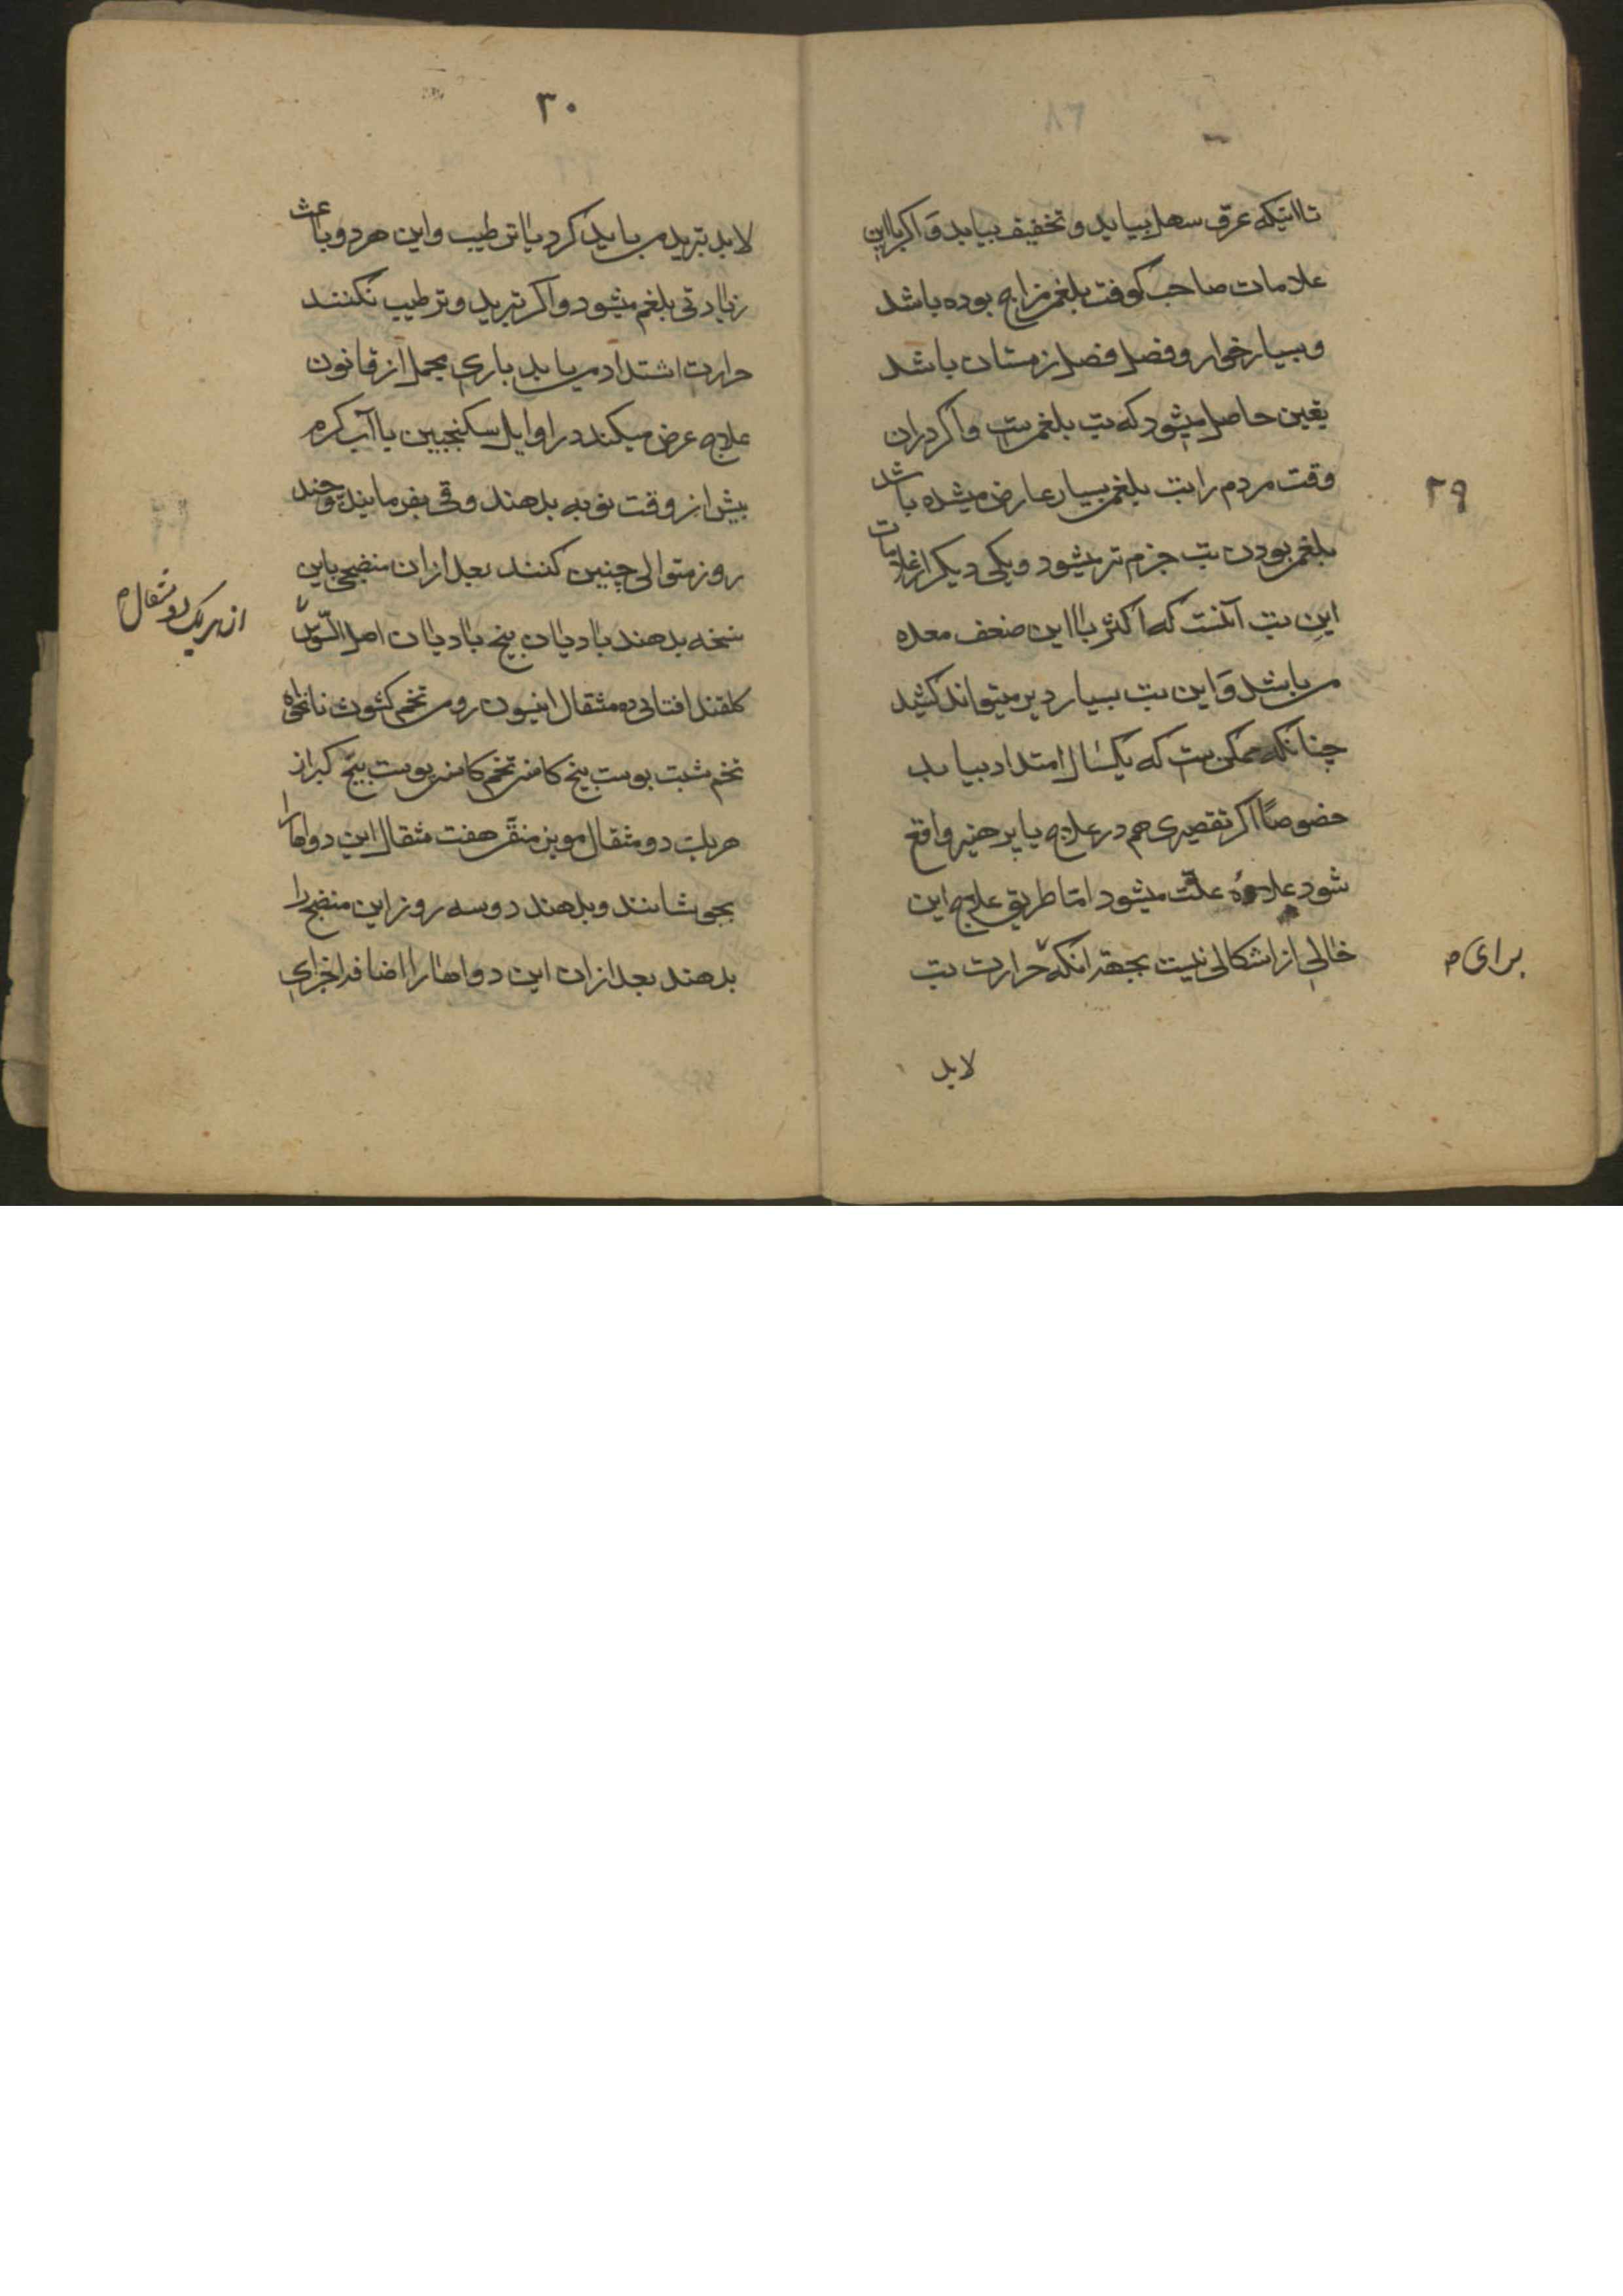 تا اینکه عرق سهل بیاید و تخفیف بیابد وَ اکر با این
علامات صاحب کوفت بلغمی مزاج بوده باشد
و بسیار خوار و فصل فصل زمستان باشد
یقین حاصل میشود که تب بلغمی ست و اکر دران
وقت مردم را تب بلغمی بسیار عارض میشده باشد
۲۹
بلغمی بودن تب جزم تر میشود و یکی دیکر از علامات
این تب آنست که اکثر با این ضعف معده
می باشد وَ این تب بسیار دیر میتواند کشید
چنانکه ممکن ست که یکسال امتداد بیابد
خصوصًا اکر تقصیری هم در علاج یا پرهیز واقع
شود علاوهٔ علّت میشود امّا طریق علاج این
خالی از اشکالی نیست بجهة انکه حرارت تب
برای م
لابد
۳۰
لابد تبرید می باید کرد یا ترطیب و این هردو باعث
زیادتی بلغم میشود و اکر تبرید و ترطیب نکنند
حرارت اشتداد می یابد باری مجملی از قانون
علاج عرض میکند در اوایل سکنجبین با آب کرم
پیش از وقت نوبه بدهند و قی بفرمایند و چند
روز متوالی چنین کنند بعد ازان منضجی باین
نسخه بدهند بادیان بیخ بادیان اصل السّوس
از هریک دو مثقال م
کلقند افتابی ده مثقال انیسون رومی تخم کشوث نانخواه
تخم شبت پوست بیخ کاسنی تخم کاسنی پوست بیخ کبر از
هریک دو مثقال مویز منقّی هفت مثقال این دواها را
بجوشانند و بدهند دو سه روز این منضج را
بدهند بعد ازان این دواها را اضافه اجزای